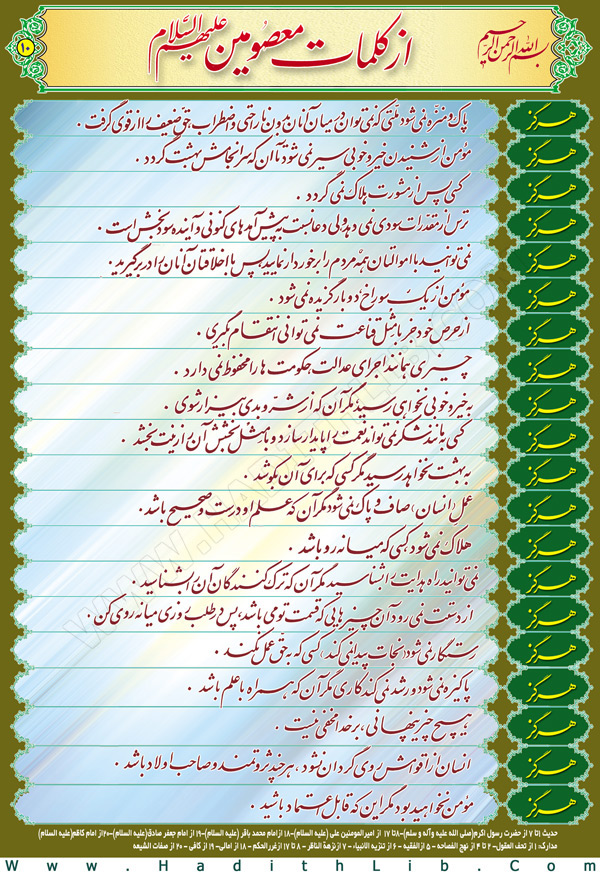 بسم الله الرحمن الرحیم
از کلمات معصومین علیهم السلام
۱۰
هرگز پاک و منزه نمی شود ملتی که نمی توان در میان آنان بدون ناراحتی و اضطراب حق ضعیف را از قوی گرفت .
هرگز مؤمن از شنیدن خیر و خوبی سیر نمی شود تا آن که سرانجامش بهشت گردد .
هرگز کسی پس از مشورت هلاک نمی گردد .
هرگز ترس از مقدرات سودی نمی دهد ولی دعا نسبت به پیش آمدهای کنونی و آینده سودبخش است .
هرگز نمی توانید با اموالتان همه مردم را برخوردار نمایید پس با اخلاقتان آنان را در برگیرید .
هرگز مؤمن از یک سوراخ دو بار گزیده نمی شود .
هرگز از حرص خود جز با مثل قناعت نمی توانی انتقام بگیری .
هرگز چیزی همانند اجرای عدالت حکومت ها را محفوظ نمی دارد .
هرگز به خیر و خوبی نخواهی رسید مگر آن که از شر و بدی بیزار شوی .
هرگز کسی به مانند شکر نمی تواند نعمت را پایدار سازد و با مثل بخشش آن را زینت بخشد .
هرگز به بهشت نخواهد رسید مگر کسی که برای آن بکوشد .
هرگز عمل (انسان) صاف و پاک نمی شود مگر آن که علم او درست و صحیح باشد .
هرگز هلاک نمی شود کسی که میانه رو باشد .
هرگز نمی توانید راه هدایت را بشناسید مگر آن که ترک کنندگان آن را بشناسید .
هرگز از دستت نمی رود آن چیزهایی که قسمت تو می باشد، پس در طلب روزی میانه روی کن .
هرگز رستگار نمی شود (نجات پیدا نمی کند) کسی که به حق عمل نکند .
هرگز پاکیزه نمی شود و رشد نمی کند کاری مگر آن که همراه با علم باشد .
هرگز هیچ چیز پنهانی ، بر خدا مخفی نیست .
هرگز انسان از اقوامش روی گردان نشود ، هر چند ثروتمند و صاحب اولاد باشد .
هرگز مؤمن نخواهید بود مگر این که قابل اعتماد باشید .
حدیث ۱ تا ۷ از حضرت رسول اکرم(صلی الله علیه و آله و سلم)-۸ تا ۱۷ از امیرالمومنین علی (علیه السلام)-۱۸ از امام محمد باقر (علیه السلام)-۱۹ از امام جعفر صادق(علیه السلام)-۲۰ از امام کاظم(علیه السلام)
مدارک: ۱ از تحف العقول- ۲ تا ۴ از نهج الفصاحه - ۵ از الفقیه - ۶ از تنزیه الانبیاء - ۷ از نزهة الناظر - ۸ تا ۱۷ از غررالحکم - ۱۸ از امالی- ۱۹ از کافی - ۲۰ از صفات الشیعه
www.HadithLib.Com